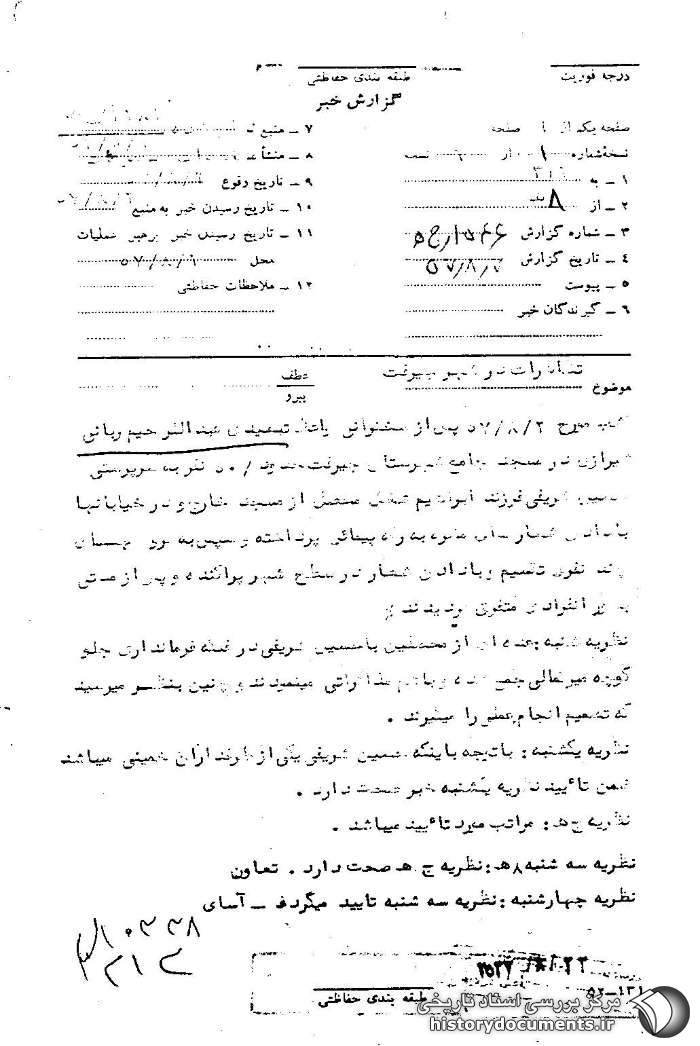 درجه فوریت
طبقه بندی حفاظتی
گزارش خبر
صفحه یک از ۱ صفحه
نسخه شماره ۱ از نسخه
۱ ـ به
۲ ـ از ۸
۳ ـ شماره گزارش
۴ ـ تاریخ گزارش ۵۷/۸/۷
۵ ـ پیوست
۶ ـ گیرندگان خبر
۷ ـ منبع
۸ ـ منشأ
۹ ـ تاریخ وقوع
۱۰ ـ تاریخ رسیدن خبر به منبع
۱۱ ـ تاریخ رسیدن خبر برهبر عملیات
محل ۵۷/۸/۶
۱۲ ـ ملاحظات حفاظتی
موضوع تظاهرات در شهر جیرفت
عطف
پیرو
مورخ ۵۷/۸/۲ پس از سخنرانی تبعیدی عبدالرحیم ربانی
شیرازی در مسجد جامع شهرستان جیرفت حدود ۵۰ نفر به سرپرستی
حسین شریفی فرزند ابراهیم شغل محصل از مسجد خارج و در خیابانها
با دادن شعار به راه پیمائی پرداخته و سپس به
چند نفری تقسیم و با دادن شعار در سطح شهر پراکنده و پس از مدتی
افراد متفرق گردیدند
نظریه شنبه : عده ای از محصلین با حسین شریفی در فلکه فرمانداری جلو
کوچه جمع شده و با هم مذاکراتی مینمودند و چنین بنظر میرسید
که تصمیم انجام عملی را میگیرند .
نظریه یکشنبه : با توجه باینکه حسین شریفی یکی از طرفداران خمینی میباشد
ضمن تأیید نظریه یکشنبه خبر صحت دارد .
نظریه ج ه : مراتب مورد تأیید میباشد .
نظریه سه شنبه ۸ ه : نظریه ج ه صحت دارد . تعاون
نظریه چهارشنبه : نظریه سه شنبه تایید میگردد ـ آسای
۳۱۲
طبقه بندی حفاظتی
مرکز بررسی اسناد تاریخی
historydocuments.ir